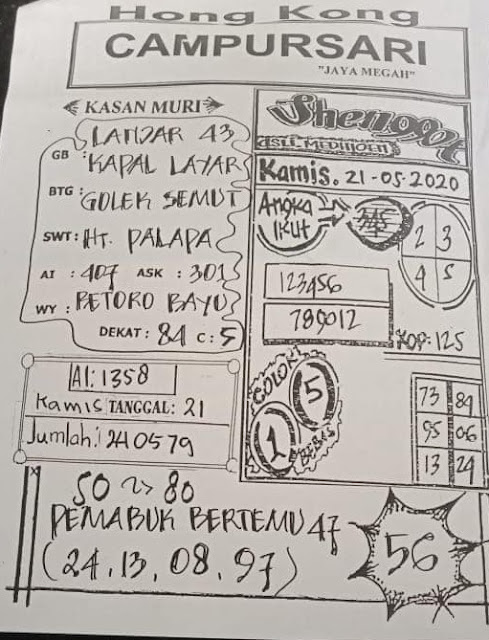 Hong Kong
CAMPURSARI
"JAYA MEGAH"
KASAN MURI
LANJAR 43
GB : KAPAL LAYAR
BTG : GOLEK SEMUT
SWT : HT. PALAPA
AI : 407 ASK : 301
WY : BETORO BAYU
DEKAT : 84 C : 5
AI: 1358
Kamis TANGGAL: 21
Jumlah: 240579
ASLI MEDIJOEN
Kamis. 21-05-2020
Angka
IKUT
2 3
4 5
123456
789012
KOP: 125
COLOK
5
1
BEBAS
73 89
95 06
13 24
50 ~> 80
PEMABUK BERTEMU 47
(24, 13, 08, 97)
56